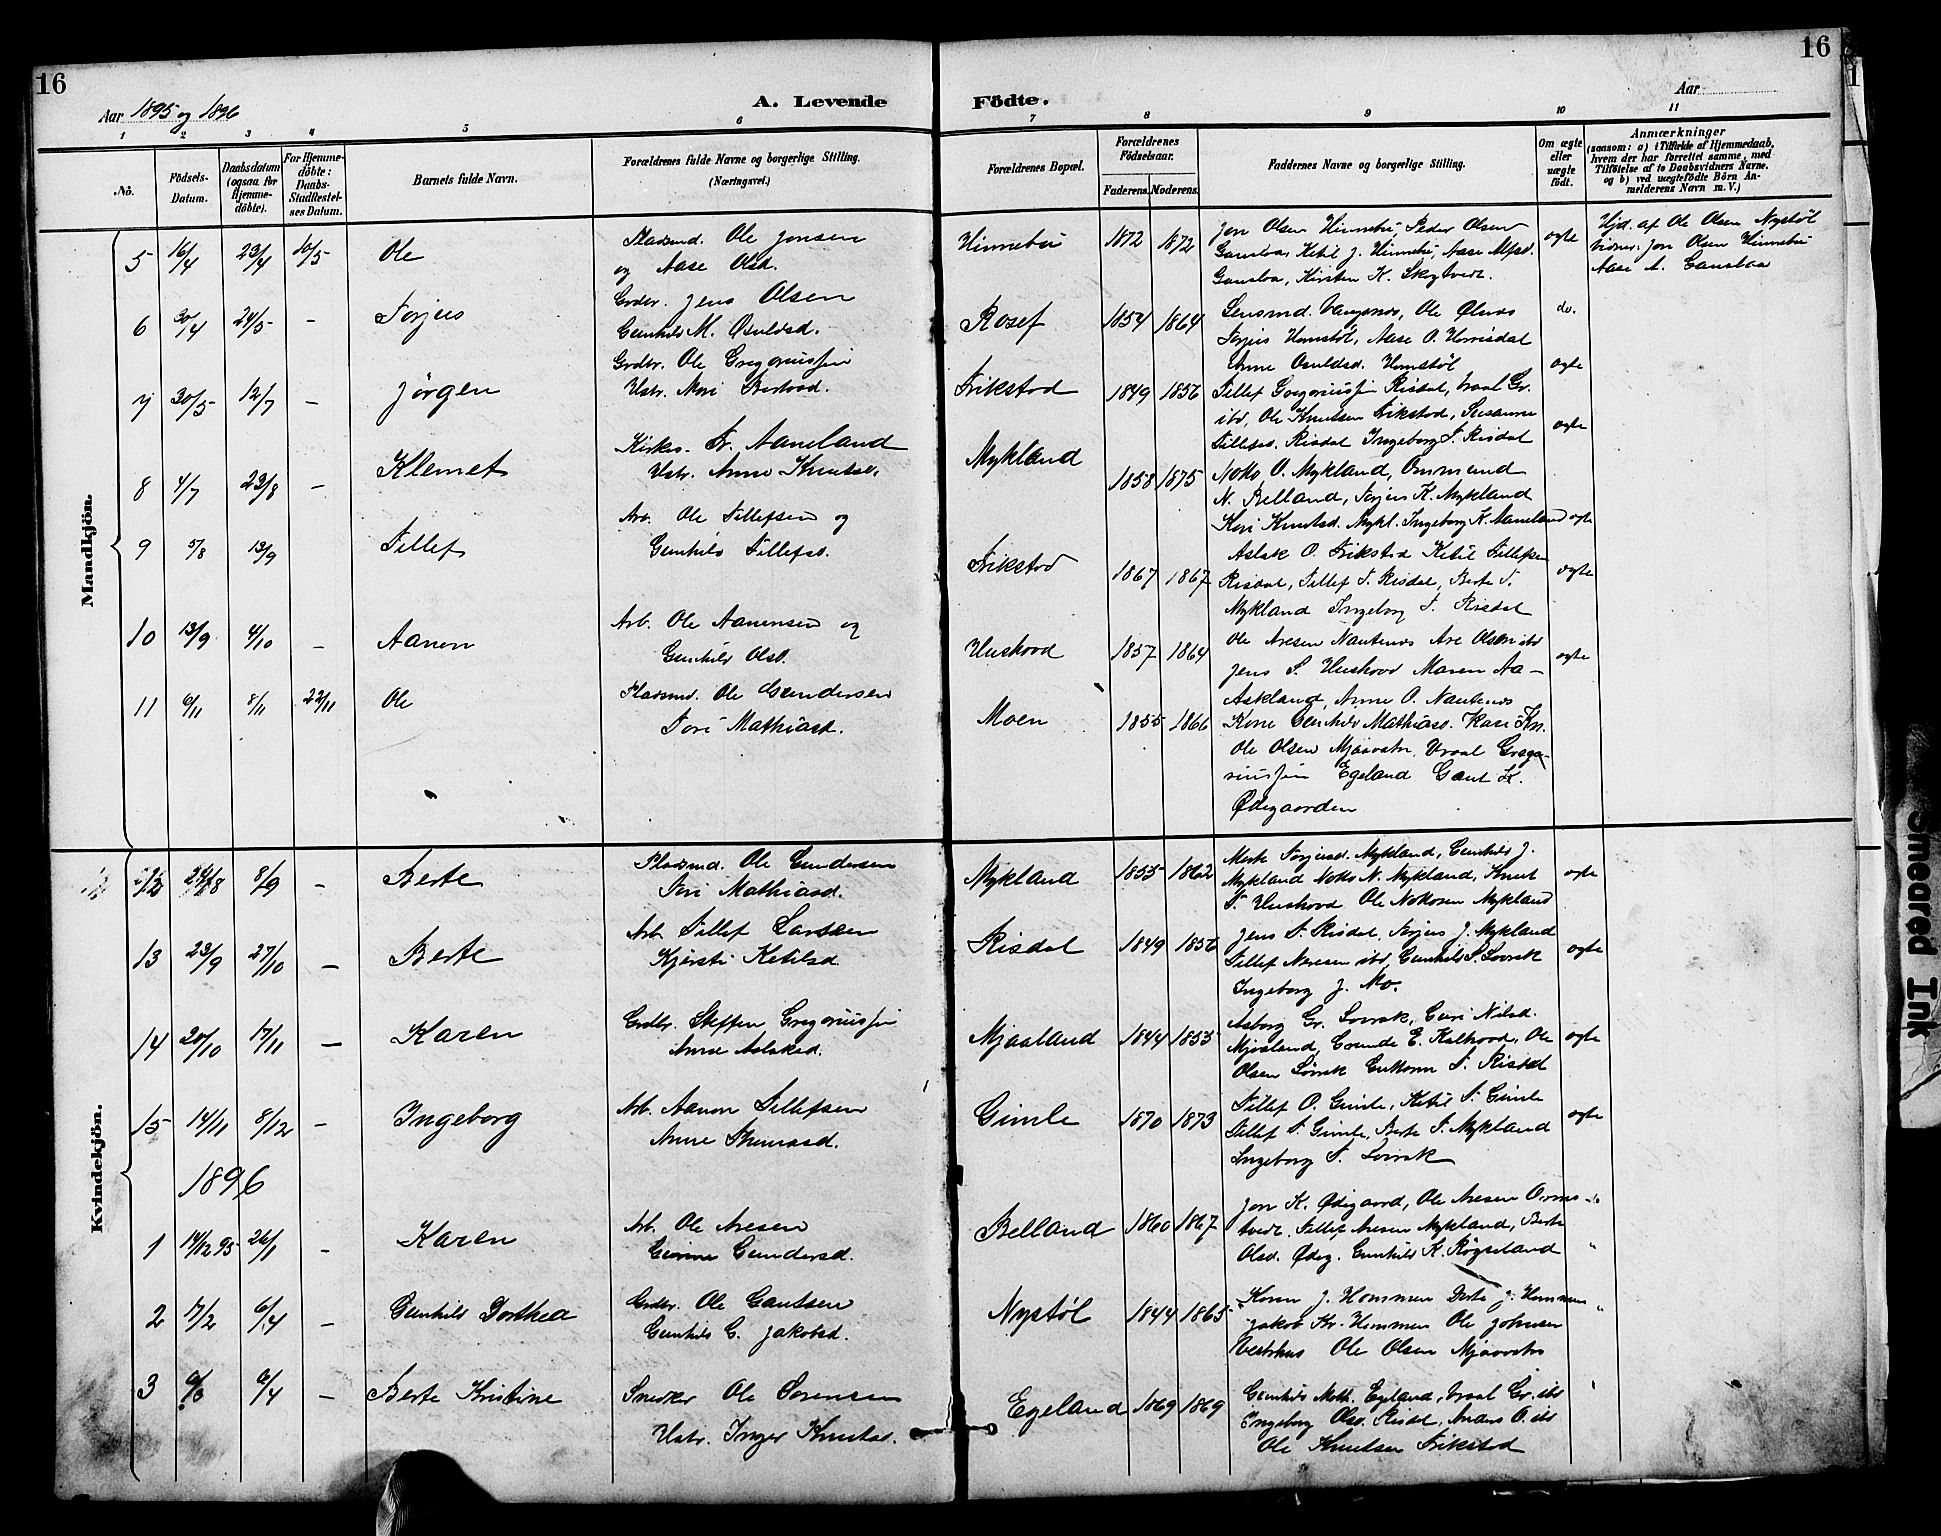 16
16
Aar 1895 og 1896
A. Levende Födte.
Aar
1 2 3 4 5 6 7 8 9 10 11
No.
Födsels-Datum.
Daabsdatum (ogsaa for Hjemme-döbte).
For Hjemme-döbte: Daabs-Stadfæstel-ses Datum.
Barnets fulde Navn.
Forældrenes fulde Navne og borgerlige Stilling. (Næringsvei.)
Forældrenes Bopæl.
Forældrenes Födselsaar.
Faderens. Moderens.
Faddernes Navne og borgerlig Stilling.
Om ægte eller uægte födt.
Anmærkninger
(saasom: a) i Tilfælde af Hjemmedaab, hvem der har forrettet samme, med Tilföielse af to Daabsvidners Navne. og b) ved uægtefödte Börn An-melderens Navn m. V.)
Mandkjön.
5 16/4 23/4 10/5 Ole
Pladsmd. Ole Jonsen
og Aase Olsd.
Hinnebu 1872 1872
Jon Olsen Hinnebu, Peder Olsen
Ganslaa, Ketil J. Hinnebu, Aase Alfsd.
Ganslaa, Kirsten K. Skogtvedt.
ægte
Hjd. af Ole Olsen Nystøl
vidner: Jon Olsen Hinnebu
Aase A. Ganslaa
6 30/4 24/5 - Torjus
Grdbr. Jens Olsen
Gunhild M. Osuldsd.
Rosef 1854 1864
Lensmd. Vangsnes, Ole Ølnes
Torjus Homstøl, Aase O. Horrisdal
Anne Osuldsd. Homstøl
do.
7 30/5 12/7 - Jörgen
Grdbr. Ole Gregoriussen
Hstr. Mari Bertosd.
Trikstad 1849 1856
Tellef Gregoriussen Risdal, Vraal Gr.
ibd, Ole Knutsen Trikstad, Susanne
Tellefsd. Risdal Ingeborg T. Risdal
ægte
8 4/7 23/8 - Klemet
Kirkes. Tr. Aaneland
Hstr. Anne Knutsd.
Mykland 1858 1875
Notto O. Mykland, Ommund
N. Belland, Torjus K. Mykland
Kari Knutsd. Mykl. Ingeborg K. Aaneland
ægte
9 5/8 13/9 Tellef
Arb. Ole Tellefsen og
Gunhild Tellefsd.
Trikstad 1867 1867
Aslak O. Trikstad Ketil Tellefsen
Risdal, Tellef T. Risdal, Berte T.
Mykland Ingeborg T. Risdal
ægte
10 13/9 4/10 - Aanon
Arb. Ole Aanensen og
Gunhild Olsd.
Huskvod 1857 1864
Ole Aresen Nautenes Are Olsen ibd
Jens S. Huskvod Maren Aa-
Askland, Anne O. Nautenes
ægte
11 6/11 8/11 22/11 Ole
Pladsmd. Ole Gundersen
Tori Mathiasd.
Moen 1855 1866
Kone Gunhild Mathiasd. Kari Kn.
Ole Olsen Mjaavatn, Vraal Grego-
riussen Egeland Gaut K.
Ødegaarden
Kvindekjön.
12 24/8 8/9 - Berte
Pladsmd. Ole Gundersen
Tori Mathiasd.
Mykland 1855 1862
Marte Torjusd. Mykland, Gunhild J.
Mykland Notto N. Mykland, Knut
T. Huskvod Ole Nottosen Mykland
ægte
13 23/9 27/10 - Berte
Arb. Tellef Larssen
Kjersti Ketilsd
Risdal 1849 1856
Jens T. Risdal, Torjus J. Mykland
Tellef Aresen ibd, Gunhild T. Lovrak
Ingeborg J. Mo.
ægte
14 20/10 17/11 - Karen
Grdbr. Steffen Gregoriussen
Anne Aslaksd.
Mjaaland 1844 1853
Asborg Gr. Lovrak, Guri Nilsd.
Mjaaland, Gunde E. Kalhovd, Ole
Olsen Lovrak Guttorm T. Risdal
ægte
15 14/11 8/12 - Ingeborg
Arb. Aanon Tellefsen
Anne Thomasd.
Gimle 1870 1873
Tellef O. Gimle, Ketil T. Gimle
Tellef T. Gimle, Berte T. Mykland
Ingeborg T. Lovrak
ægte
1896
1 14/12 95 26/1 - Karen
Arb. Ole Aresen
Gunde Gundersd.
Belland 1860 1867
Jon K. Ødegaard, Ole Aresen Orms-
tvedt, Tellef Aresen Mykland, Berte
Olsd. Ødeg. Gunhild K. Røyseland
"
2 17/2 6/4 - Gunhild Dorthea
Grdbr. Ole Gautsen
Gunhild G. Jakobsd.
Nystøl 1844 1865
Karen J. Hommen Berte J. Hommen
Jakob Kr. Hommen Ole Johnsen
Vestihus Ole Olsen Mjaavatn
"
3 6/3 6/4 - Berte Kristine
Snedker Ole Sørensen
Hstr. Inger Knutsd.
Egeland 1869 1869
Gunhild Math. Egeland, Vraal Gr. ibd
Ingeborg Olsd. Risdal, Anders O. ibd
Ole Knutsen Trikstad
Smeared Ink